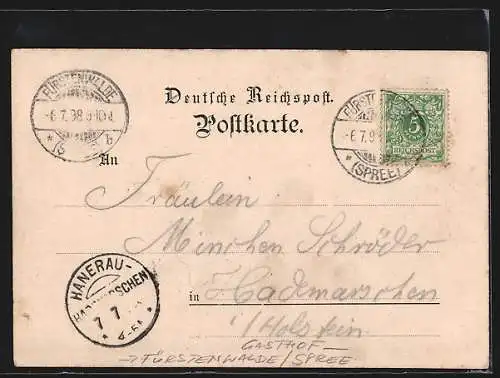 FÜRSTENWALDE
-6.7.98.9-10N.
* (SPREE) b
Deutsche Reichspost.
Postkarte.
FÜRSTEN
-6.7.9
* (SPREE)
5
REICHSPOST
An
Fräulein
Minchen Schröder
in Hademarschen
i/Holstein
HANERAU-
HADEMARSCHEN
7 7
GASTHOF
→ FÜRSTENWALDE/SPREE